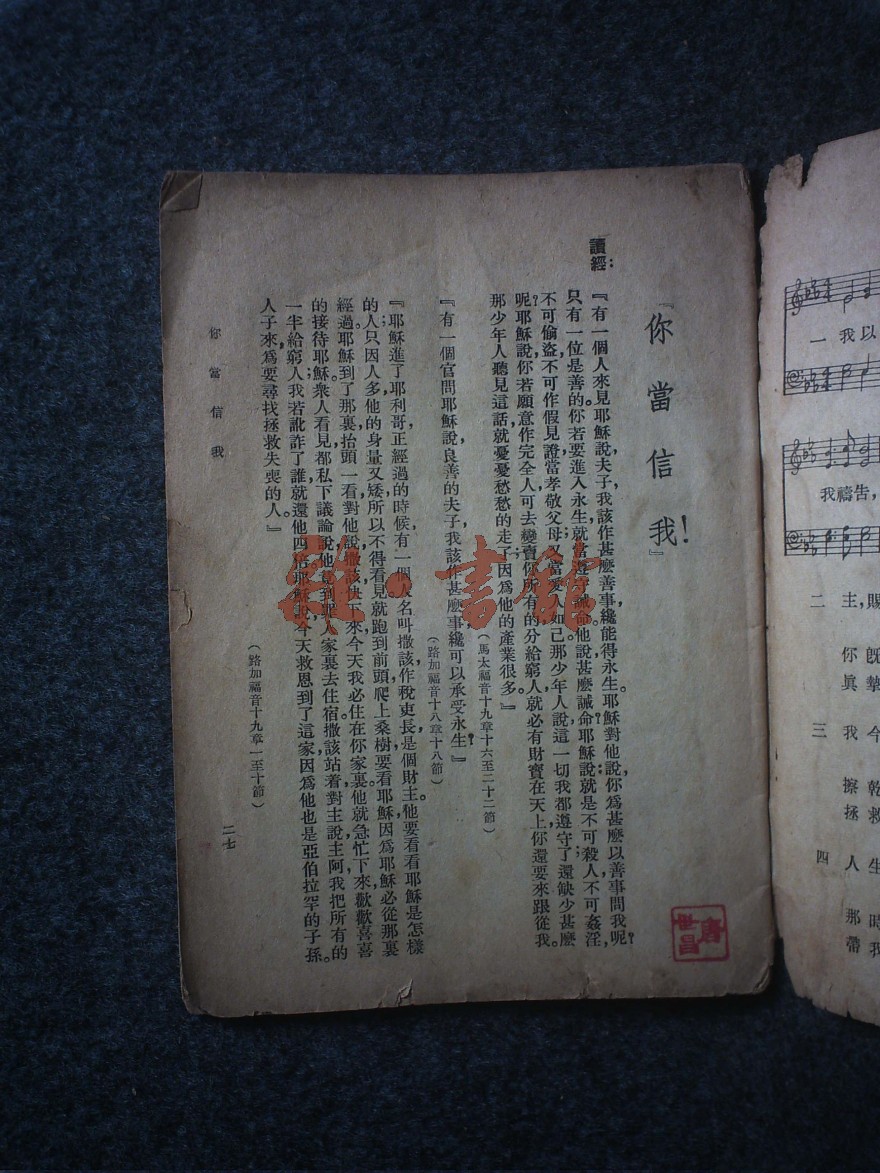 『你當信我！』
讀經：
『有一個人來見耶穌說，夫子，我該作甚麼善事，纔能得永生。耶穌對他說，你爲甚麼以善事問我呢？
只有一位是善的。你若要進入永生，就當遵守誡命。他說，甚麼誡命。耶穌說，就是不可殺人，不可姦淫，
不可偷盜，不可作假見證，當孝敬父母，又當愛人如己。那少年人說，這一切我都遵守了，還缺少甚麼
呢？耶穌說，你若願意作完全人，可去變賣你所有的，分給窮人，就必有財寶在天上，你還要來跟從我。
那少年人聽見這話，就憂憂愁愁的走了，因爲他的產業很多。』
（馬太福音十九章十六至二十二節）
『有一個官問耶穌說，良善的夫子，我該作甚麼事，纔可以承受永生？』
（路加福音十八章十八節）
『耶穌進了耶利哥，正經過的時候，有一個人名叫撒該，作稅吏長，是個財主。他要看看耶穌是怎樣
的人；只因人多，他的身量又矮，所以不得看見，就跑到前頭，爬上桑樹，要看耶穌，因爲耶穌必從那裏
經過。耶穌到了那裏，抬頭一看，對他說，撒該，快下來，今天我必住在你家裏。他就急忙下來，歡歡喜喜
的接待耶穌。衆人看見，都私下議論說，他竟到罪人家裏去住宿。撒該站着，對主說，主阿，我把所有的
一半給窮人，我若訛詐了誰，就還他四倍。耶穌說，今天救恩到了這家，因爲他也是亞伯拉罕的子孫。
人子來，爲要尋找拯救失喪的人。』
（路加福音十九章一至十節）
你當信我
二七
書館
一 我以
我禱告，
二 主，賜
你既
眞摯
三 我今
擦乾
拯救
四 人生
那時
帶我